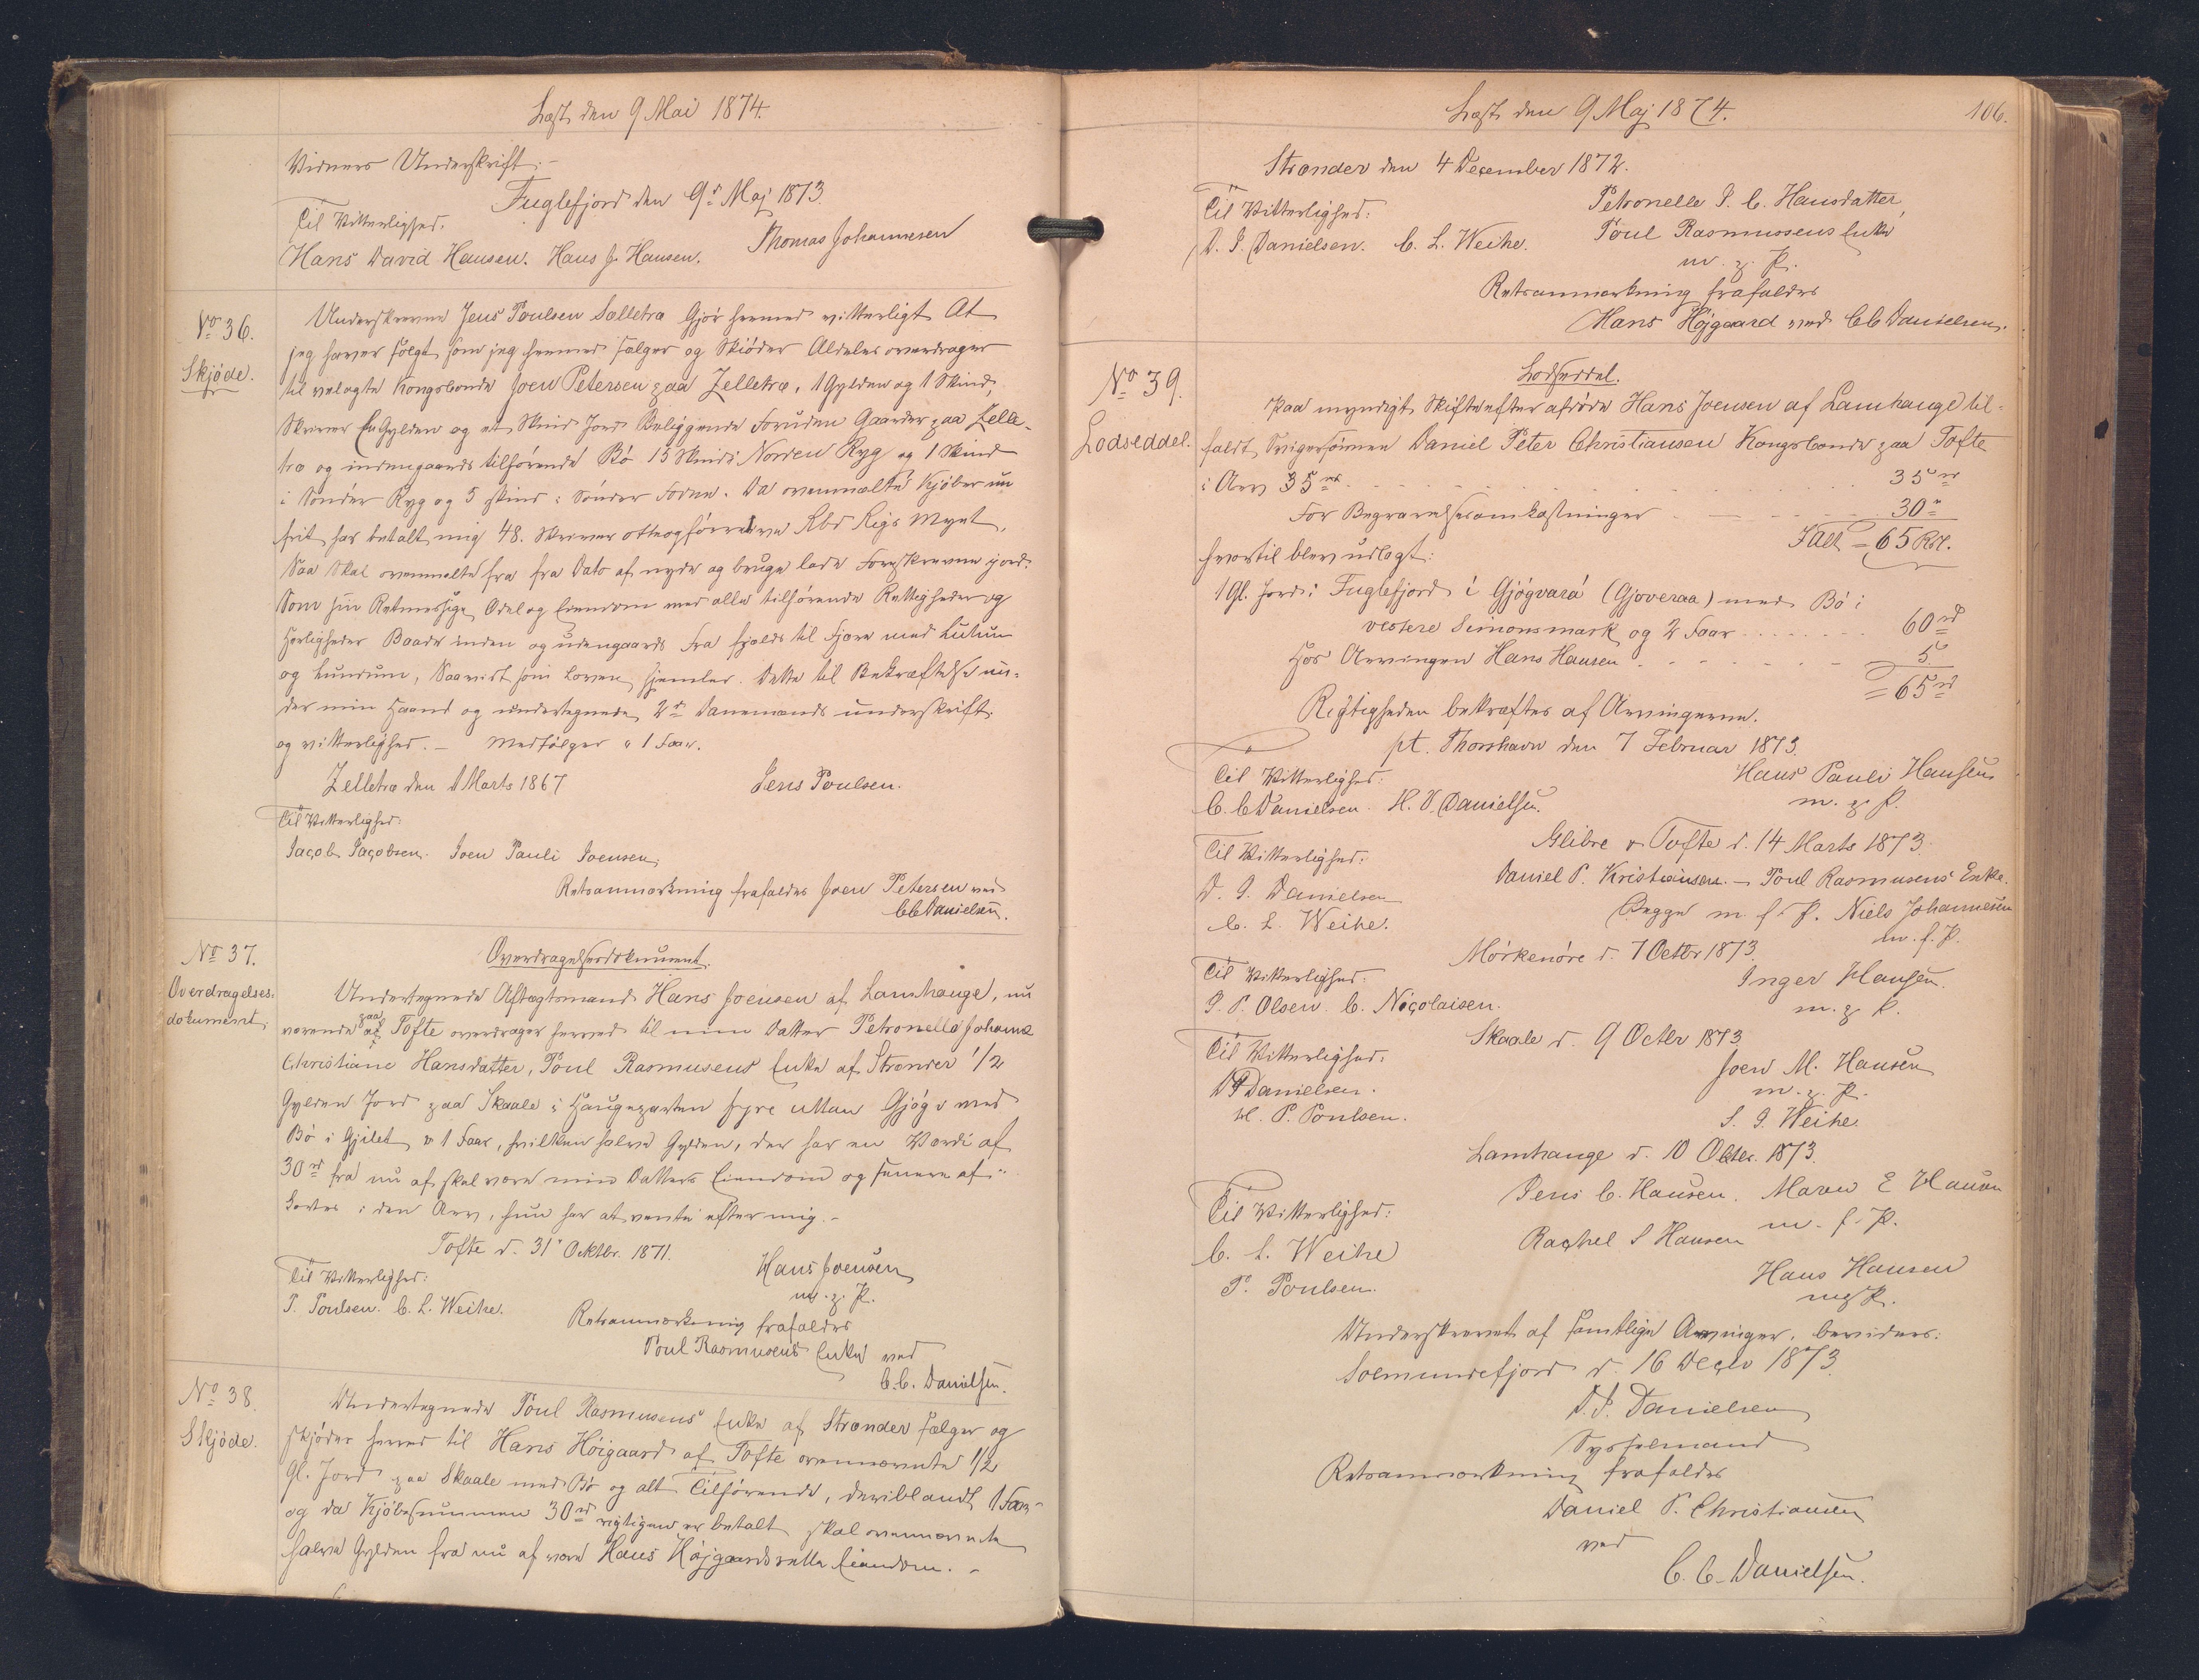 Læst den 9 Mai 1874.
Vidners Underskrift:-
Fuglefjord den 9d Maj 1873.
Til Vitterlighed.
Thomas Johannesen
Hans David Hansen. Hans J. Hansen.
No 36.
Skjöde.
Underskrevne Jens Poulsen Selletræ Gjör hermed vitterligt At
jeg haver solgt som jeg hermed sælger og Skiöder Aldeles overdrager
til velagte Kongsbonde Joen Petersen paa Zelletræ, 1 Gylden og 1 Skind,
Skriver En Gylden og et Skind Jord Beliggende Foruden Gaarder paa Zelle-
træ og indengaards tilhörende Bö 15 Skind i Norden Ryg og 1 Skind
i Sönder Ryg og 5 skind i Sönder . Da ovenmælte Kjöber nu
frit har betalt mig 48. Skriver otteogförretyve Rbd Rigs Mynt,
Saa Skal ovenmelte fra fra Dato af nyde og bruge lade Foreskrevne jord.
Som sin Retmessige Odel og Eiendom med alle tilhörende Rettigheder og
Herligheder Baade inden og udengaards fra fjelds til Fjære med Lutum
og Lundum, Saavist som Loven hjemler. Dette til Bekræftelse un-
der min Haand og undertegnede 2de Danemænds underskrift
og vitterlighed. – Medfölger 1 Faar.
Zelletræ den 1 Marts 1867
Jens Poulsen.
Til Vitterlighed:
Jacob Jacobsen. Joen Pauli Joensen,
Retsanmærkning frafaldes Joen Petersen ved
CCDanielsen.
No 37.
Overdragelses-
dokument,
Overdragelsesdokument.
Undertegnede Aftægtsmand Hans Joensen af Lamhauge, nu
værende paa Tofte overdrager herved til min Datter Petronelle Johanne
Christiane Hansdatter, Poul Rasmusens Enke af Strænder 1/2
Gylden Jord paa Skaale i Haugeparten fyre uttan Gjógv med
Bö i Gjilet v 1 Faar, hvilken halve Gylden, der har en Værdi af
30rd fra nu af skal være min Datters Eiendom og senere af-
kortes i den Arv, hun har at vente efter mig.-
Tofte d. 31 Oktbr. 1871.
Hans Joensen
m. p. P.
Til Vitterlighed:
P. Poulsen. C. L. Weihe.
Retsanmærkning frafaldes
Poul Rasmusens Enke ved
C.C. Danielsen.
No 38.
Skjöde.
Undertegnede Poul Rasmusens Enke af Strænder sælger og
skjöder herved til Hans Höigaard af Tofte ovennævnte 1/2
Gl. Jord paa Skaale med Bö og alt Tilhörende, deriblandt 1 Faar
og da Kjöbesummen 30rd rigtigen er betalt skal ovennævnte
halve Gylden fra nu af være Hans Höjgaards rette Eiendom. -
Læst den 9 Maj 1874.
106.
Strænder den 4 December 1872.
Til Vitterlighed:
Petronelle J. C. Hansdatter,
Poul Rasmussens Enke
D. J. Danielsen. C. L. Weihe.
m. p. P.
Retsanmærkning frafaldes
Hans Höjgaard ved CCDanielsen.
No 39.
Lodseddel.
Lodseddel.
Paa myndigt Skifte efter afdöde Hans Joensen af Lamhauge til-
faldt Svigersönnen Daniel Peter Christiansen Kongsbonde paa Tofte
i Arv 35rd 35rd
For Begravelsesomkostninger 30"
Ialt = 65 Rdl.
hvortil blev udlagt:
1 Gl. Jord i Fuglefjord i Gjógvará (Gjoveraa) med Bö i
vestere Simonsmark og 2 Faar 60rd
Hos Arvingen Hans Hansen 5
= 65rd
Rigtigheden bekræftes af Arvingerne.
pt. Thorshavn den 7 Februar 1873.
Til Vitterlighed:
Hans Pauli Hansen
m. p. P.
C. C Danielsen. H. D. Danielsen.
Glibre v Tofte d. 14 Marts 1873.
Til Vitterlighed:
Daniel P. Kristiansen. – Poul Rasmusens Enke.
D. J. Danielsen
Begge m. f. P. Niels Johannesen
C. L. Weihe.
m. f. P.
Mörkenöre d. 7 Octbr 1873.
Til Vitterlighed.
Inger Hansen.
J. P. Olsen. C. Nicolaisen.
m. p. P.
Skaale d. 9 Octbr 1873
Til Vitterlighed.
Joen M. Hansen
DJDanielsen.
m. p. P.
H. P. Poulsen.
S. J. Weihe.
Lamhauge d. 10 Oktbr. 1873.
Jens C. Hansen. Maren E Hansen
Til Vitterlighed:
m. f. P.
C. L. Weihe
Rachel S Hansen
P. Poulsen.
Hans Hansen
mpP.
Underskrevet af samtlige Arvinger, bevidnes:
Solmundefjord d. 16 Decbr 1873
D. J. Danielsen
Sysselmand
Retsanmærkning frafaldes
Daniel P. Christiansen
ved
C. C. Danielsen.